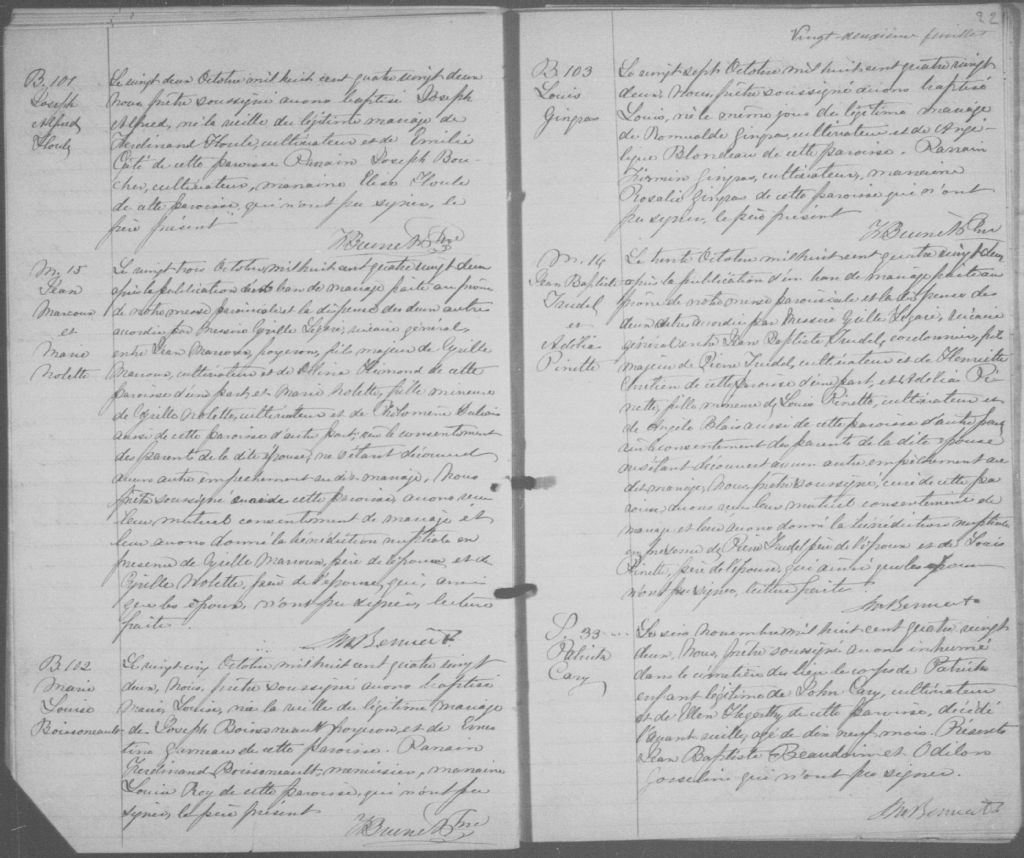 B. 101
Joseph
Alfred
Houle
Le vingt deux Octobre mil huit cent quatre vingt deux
nous, prêtre soussigné avons baptisé Joseph
Alfred, né la veille du légitime mariage de
Ferdinand Houle, cultivateur et de Emilie
Côté de cette paroisse Parrain Joseph Bou-
cher, cultivateur, marraine Elise Houle
de cette paroisse, qui n'ont pu signer, le
père présent
M. 15
Jean
Marcoux
et
Marie
Nolette
Le vingt trois Octobre, mil huit cent quatre vingt deux
après la publication d'un ban de mariage faite au prône
de notre messe paroissiale et la dispense des deux autres
accordée par Messire Cyrille Légaré, vicaire général,
entre Jean Marcoux, forgeron, fils majeur de Cyrille
Marcoux, cultivateur et de de cette
paroisse d'une part; et Marie Nolette, fille mineure
de Cyrille Nolette, cultivateur et de Philomène Dubois
aussi de cette paroisse d'autre part; vu le consentement
des parents de la dite épouse, ne s'étant découvert
aucun autre empêchement au dit mariage, Nous
prêtre soussigné curé de cette paroisse, avons reçu
leur mutuel consentement de mariage et
leur avons donné la bénédiction nuptiale en
présence de Cyrille Marcoux, père de l'époux, et de
Cyrille Nolette, père de l'épouse, qui, ainsi
que les époux, n'ont pu signer, lecture
faite.
B. 102
Marie
Louise
Boissoneault
Le vingt cinq Octobre mil huit cent quatre vingt
deux, Nous, prêtre soussigné avons baptisé
Marie Louise, née la veille du légitime mariage
de Joseph Boissoneault forgeron et de Ernes-
tine Garneau de cette paroisse. Parrain
Ferdinand Boissoneault, menuisier, marraine
Louise Roy de cette paroisse, qui n'ont pu
signer, le père présent
22
Vingt deuxième feuillet
B. 103
Louis
Gingras
Le vingt sept Octobre mil huit cent quatre vingt
deux. Nous, prêtre soussigné avons baptisé
Louis, né le même jour du légitime mariage
de Romuald Gingras, cultivateur, et de Angé-
lique Blondeau de cette paroisse. Parrain
Firmin Gingras, cultivateur, marraine
Rosalie Gingras de cette paroisse qui n'ont
pu signer, le père présent
M. 16
Jean Baptiste
Trudel
et
Adélia
Pinette
Le trente Octobre mil huit cent quatre vingt deux
après la publication d'un ban de mariage faite au
prône de notre messe paroissiale et la dispense des
deux autres accordée par Messire Cyrille Légaré, vicaire
général entre Jean Baptiste Trudel, cordonnier, fils
majeur de Pierre Trudel, cultivateur et de Henriette
Chrétien de cette paroisse d'une part; et Adélia Pi-
nette, fille mineure de Louis Pinette, cultivateur et
de Angèle Blais aussi de cette paroisse d'autre part;
vu le consentement des parents de la dite épouse
ne s'étant découvert aucun autre empêchement au
dit mariage, Nous, prêtre soussigné, curé de cette pa-
roisse avons reçu leur mutuel consentement de
mariage et leur avons donné la bénédiction nuptiale
en présence de Pierre Trudel père de l'époux et de Louis
Pinette, père de l'épouse, qui ainsi que les époux
n'ont pu signer, lecture faite.
S. 33
Patrick
Cary
Le six novembre mil huit cent quatre vingt
deux, Nous, prêtre soussigné avons inhumé
dans le cimetière du lieu le corps de Patrick
enfant légitime de John Cary, cultivateur
et de Ellen Hegarthy de cette paroisse, décédé
l'avant veille, âgé de dix neuf mois. Présents
Jean Baptiste Beaudoin et Odilon
Gosselin qui n'ont pu signer.